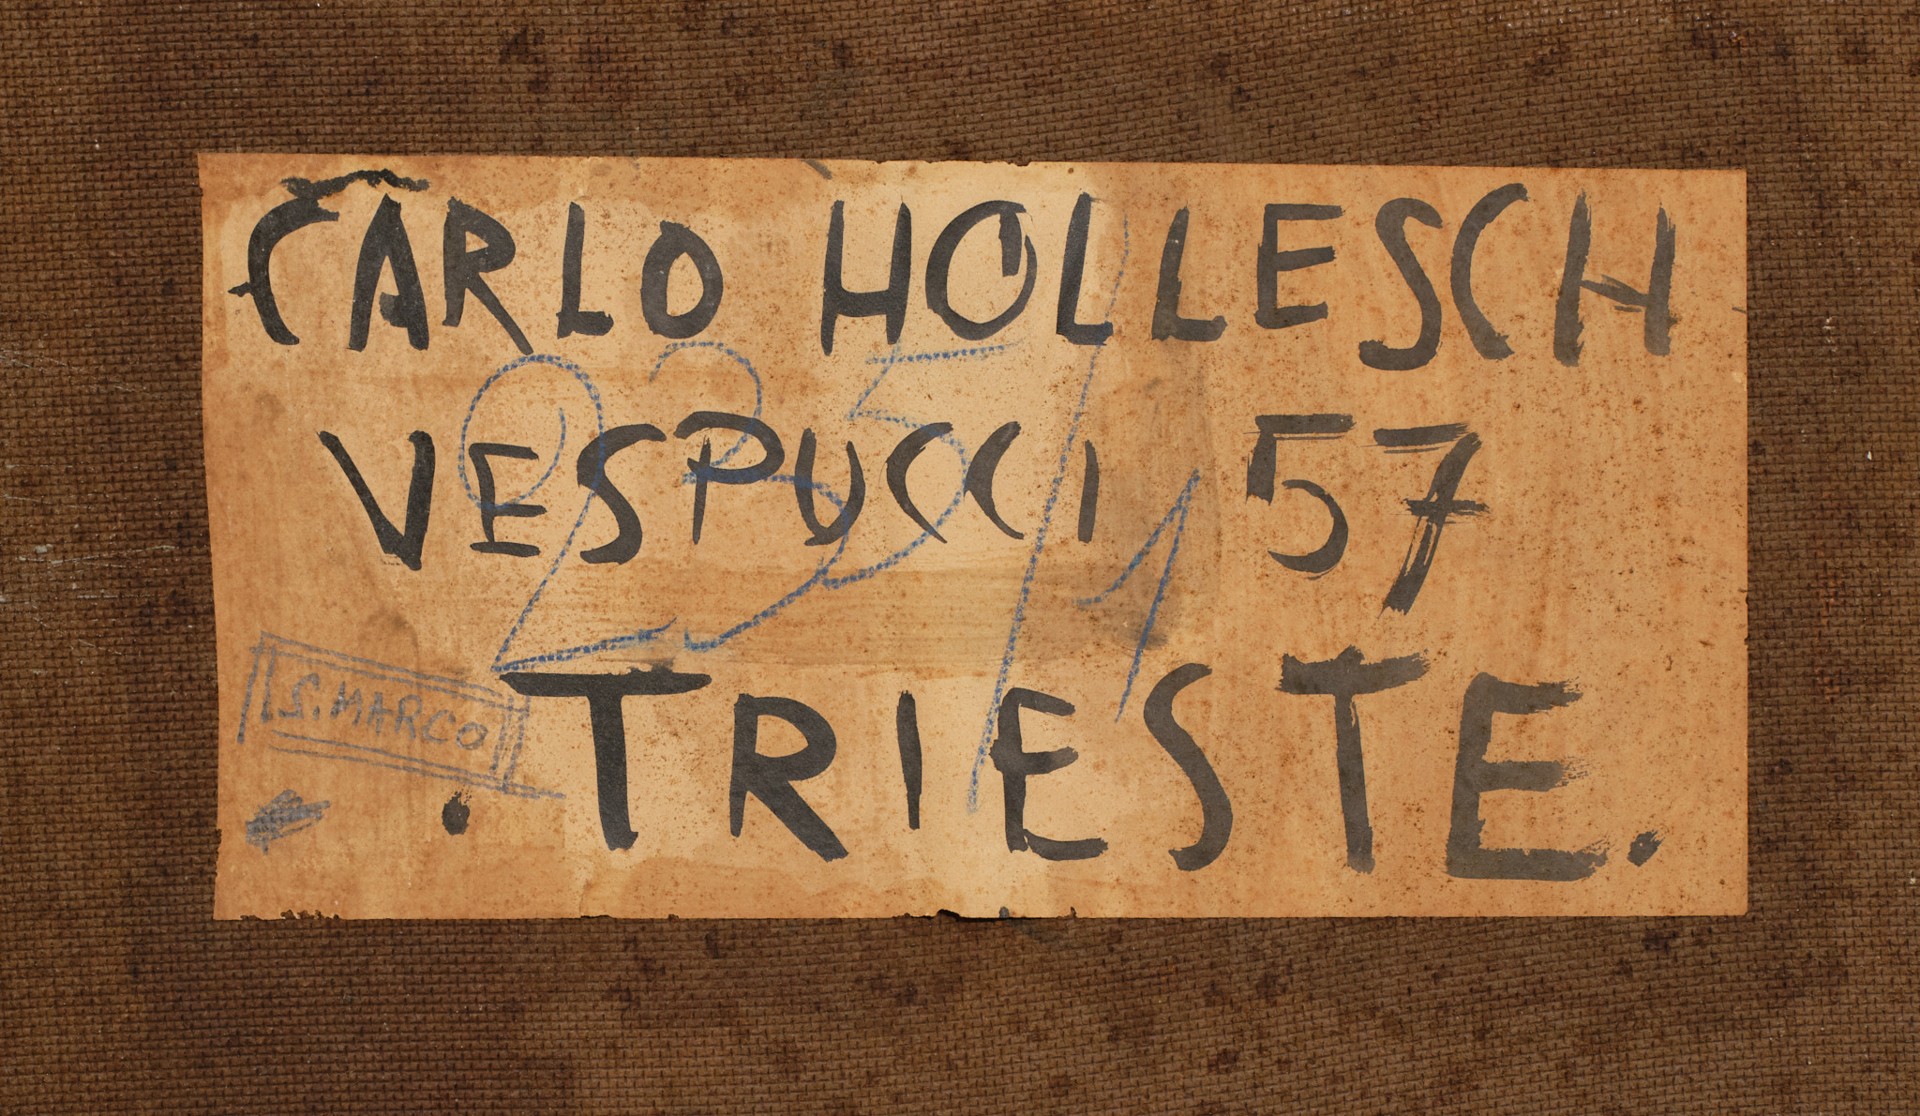 CARLO HOLLESCH
235/1
VESPUCCI 57
S. MARCO
. TRIESTE.